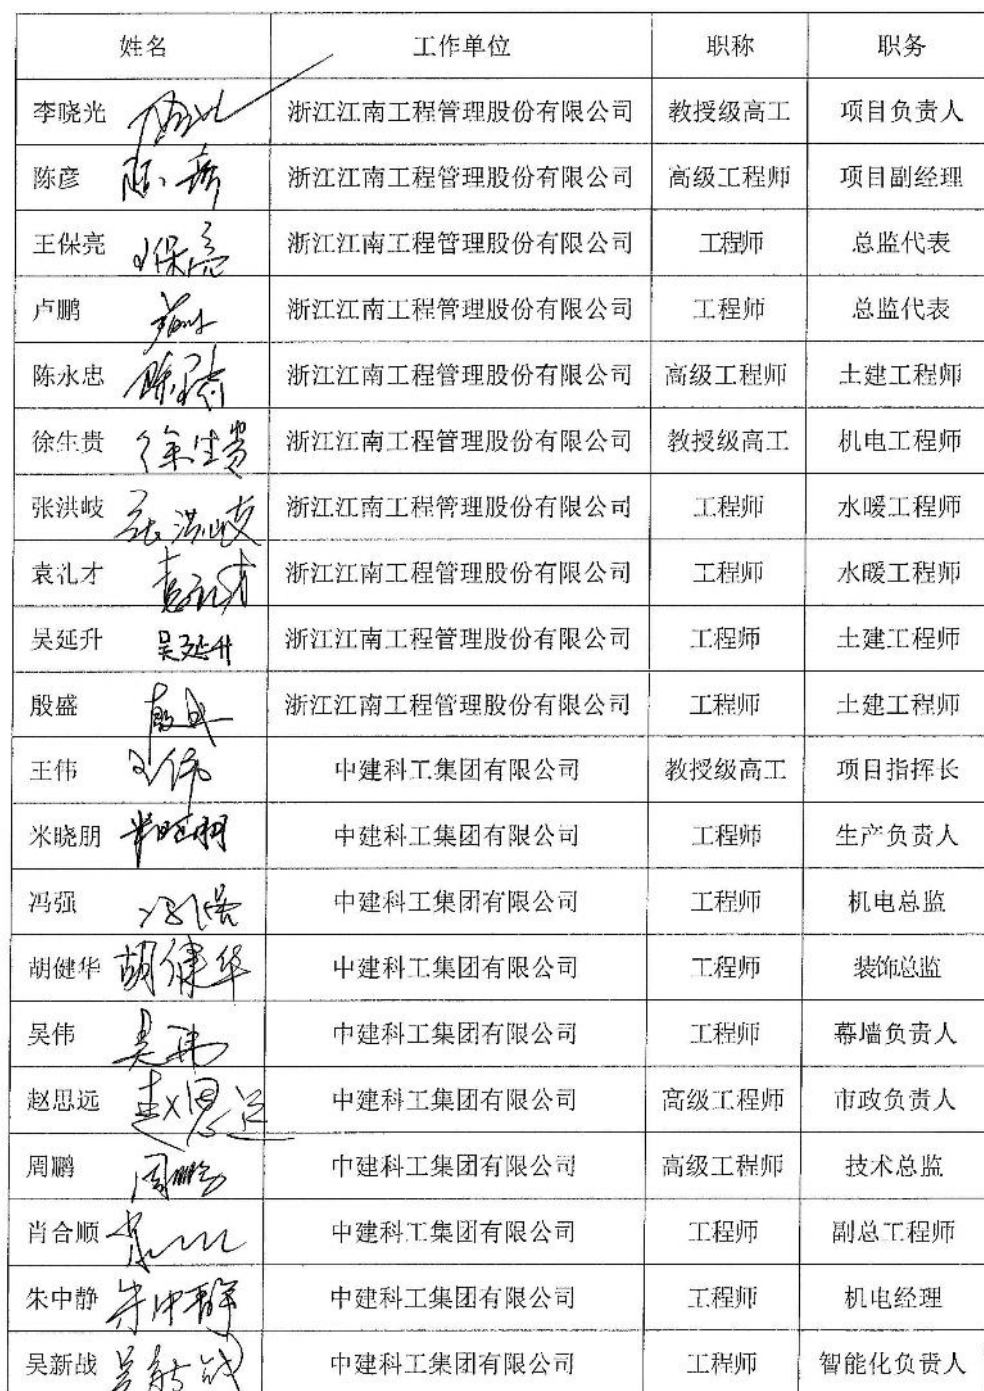 姓名 工作单位 职称 职务
李晓光 浙江江南工程管理股份有限公司 教授级高工 项目负责人
陈彦 陈彦 浙江江南工程管理股份有限公司 高级工程师 项目副经理
王保亮 王保亮 浙江江南工程管理股份有限公司 工程师 总监代表
卢鹏 浙江江南工程管理股份有限公司 工程师 总监代表
陈永忠 浙江江南工程管理股份有限公司 高级工程师 土建工程师
徐生贵 徐生贵 浙江江南工程管理股份有限公司 教授级高工 机电工程师
张洪岐 张洪岐 浙江江南工程管理股份有限公司 工程师 水暖工程师
袁礼才 袁礼才 浙江江南工程管理股份有限公司 工程师 水暖工程师
吴延升 吴延升 浙江江南工程管理股份有限公司 工程师 土建工程师
殷盛 殷盛 浙江江南工程管理股份有限公司 工程师 土建工程师
王伟 王伟 中建科工集团有限公司 教授级高工 项目指挥长
米晓朋 米晓朋 中建科工集团有限公司 工程师 生产负责人
冯强 冯强 中建科工集团有限公司 工程师 机电总监
胡健华 胡健华 中建科工集团有限公司 工程师 装饰总监
吴伟 吴伟 中建科工集团有限公司 工程师 幕墙负责人
赵思远 赵思远 中建科工集团有限公司 高级工程师 市政负责人
周鹏 周鹏 中建科工集团有限公司 高级工程师 技术总监
肖合顺 中建科工集团有限公司 工程师 副总工程师
朱中静 朱中静 中建科工集团有限公司 工程师 机电经理
吴新战 吴新战 中建科工集团有限公司 工程师 智能化负责人